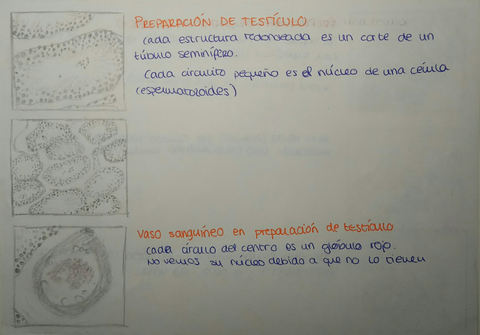 PREPARACIÓN DE TESTÍCULO
Cada estructura redondeada es un corte de un
túbulo seminífero.
Cada circulito pequeño es el núcleo de una célula
(espermatozoides)
Vaso sanguíneo en preparación de testículo
Cada círculo del centro es un glóbulo rojo.
No vemos su núcleo debido a que no lo tienen